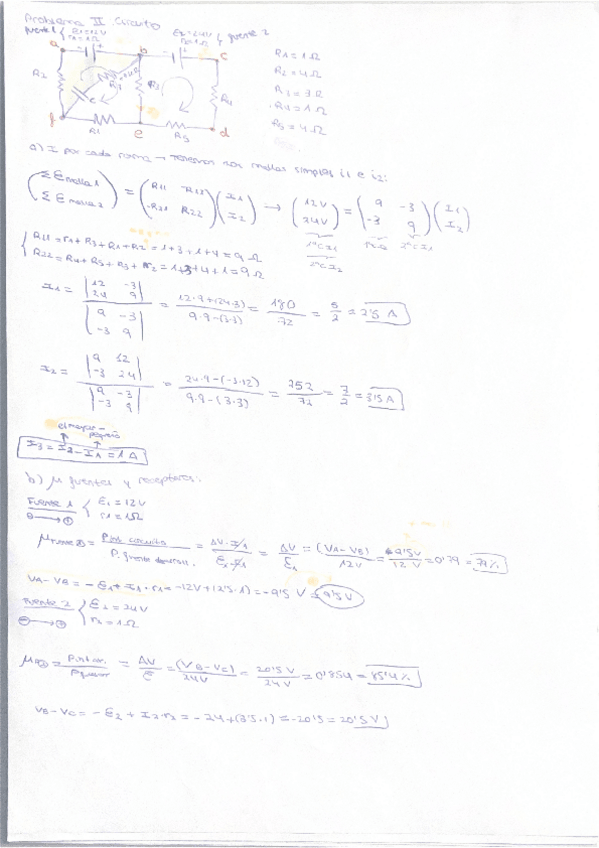 Problema II. Circuito
fuente 1 { ε1=12V
r1=1Ω
ε2=24V
r2=1Ω } fuente 2
a - + b - + c
R2 R3 R4
f R1 e R5 d
R1 = 1Ω
R2 = 4Ω
R3 = 3Ω
R4 = 1Ω
R5 = 4Ω
a) I por cada rama → Tenemos dos mallas simples i1 e i2:
(Σ ε malla 1 / Σ ε malla 2) = (R11 -R12 / -R21 R22) (I1 / I2) → (12V / 24V) = (9 -3 / -3 9) (I1 / I2)
{ R11 = r1 + R3 + R1 + R2 = 1+3+1+4 = 9 Ω
R22 = R4 + R5 + R3 + r2 = 1+3+4+1 = 9 Ω
I1 = |12 -3 / 24 9| / |9 -3 / -3 9| = 12·9+(24·3) / 9·9-(3·3) = 180 / 72 = 5/2 = 2'5 A
I2 = |9 12 / -3 24| / |9 -3 / -3 9| = 24·9-(-3·12) / 9·9-(3·3) = 252 / 72 = 7/2 = 3'5 A
el mayor - pequeño
I3 = I2 - I1 = 1 A
b) μ fuentes y receptores:
Fuente 1 { ε1 = 12V
⊖ → ⊕ r1 = 1Ω
= ΔV·I1 / ε1·I1 = ΔV / ε1 = (VA-VB) / 12V = 9'5V / 12V = 0'79 = 79%
VA-VB = -ε1 + I1·r1 = -12V + (2'5·1) = -9'5 V = 9'5 V
Fuente 2 { ε2 = 24V
⊖ → ⊕ r2 = 1Ω
= ΔV / ε = (VB-VC) / 24V = 20'5 V / 24 V = 0'854 = 85'4%
VB-VC = -ε2 + I2·r2 = -24 + (3'5·1) = -20'5 = 20'5 V